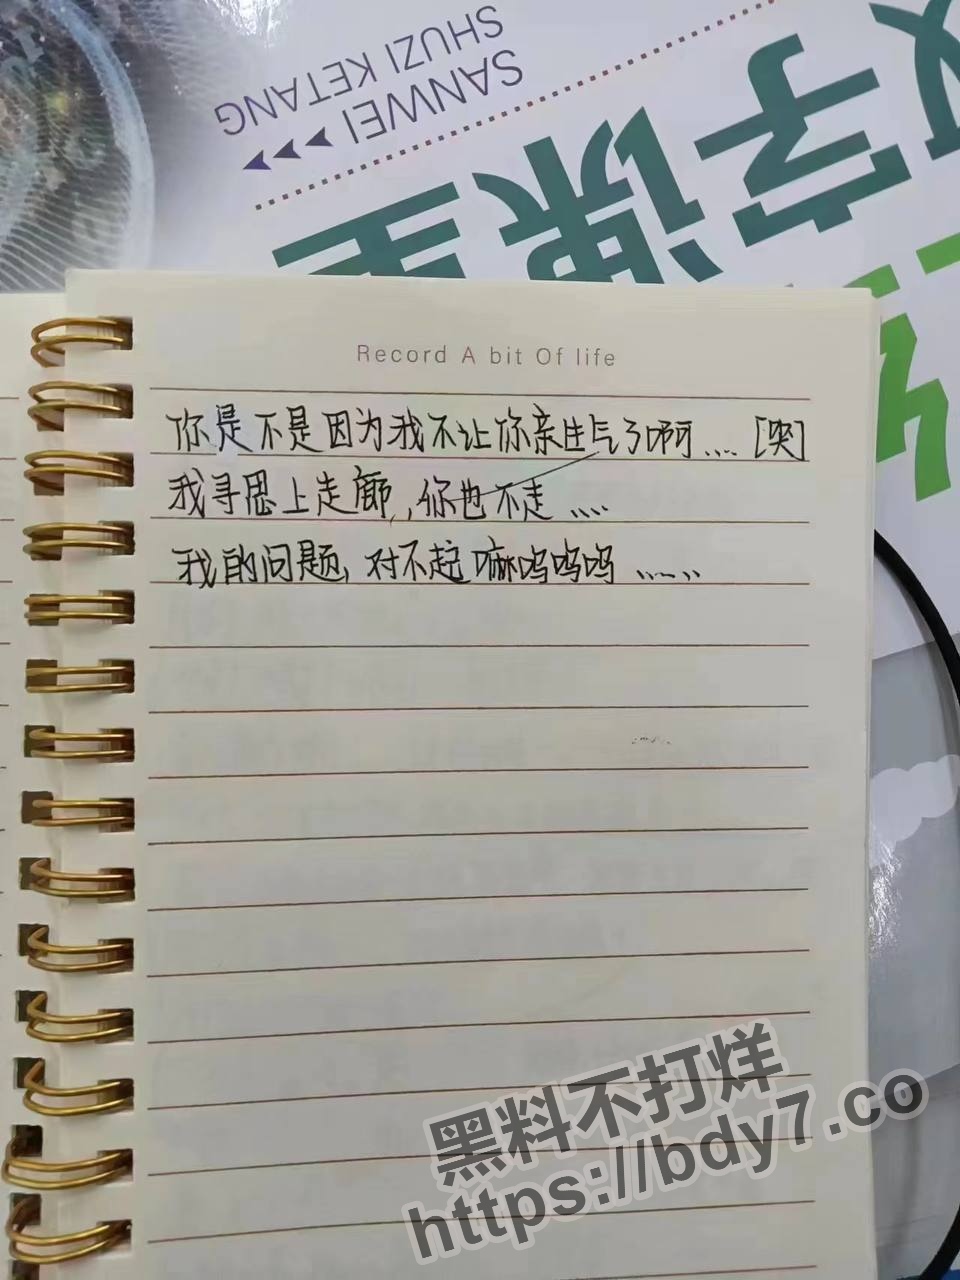 SANWEI
SHUZI KETANG
字课堂
Record A bit Of life
你是不是因为我不让你亲生气了啊.... [哭]
我寻思上走廊,,你也不走....
我的问题,对不起嘛呜呜呜......
黑料不打烊
https://bdy7.co